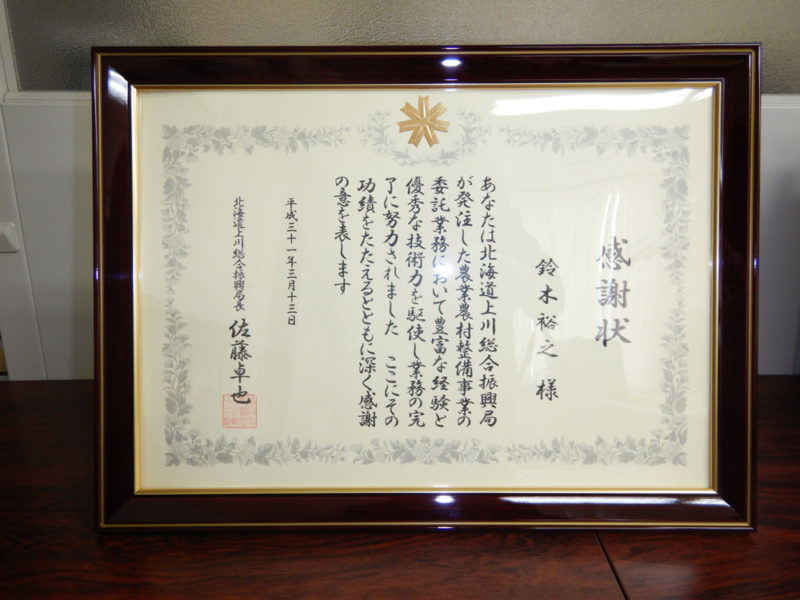 感謝状
鈴木裕之 様
あなたは北海道上川総合振興局
が発注した農業農村整備事業の
委託業務において豊富な経験と
優秀な技術力を駆使し業務の完
了に努力されました ここにその
功績をたたえるとともに深く感謝
の意を表します
平成三十一年三月十三日
北海道上川総合振興局長 佐藤卓也